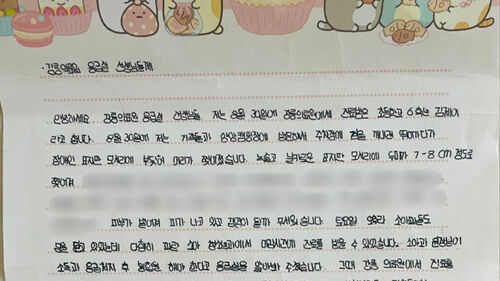 강릉의료원 응급실 선생님들께.
안녕하세요 강릉의료원 응급실 선생님들, 저는 8월 30일에 강릉의료원에서 진료받은 초등학교 6학년
라고 합니다. 8월 30일에 저는 가족들과 방문해서 주차장에 뛰어다가
장애인 표지판 모서리에 부딪혀 머리가 찢어졌습니다. 녹슬고 날카로운 표지판 모서리에 두피가 7-8cm 정도로
찢어져
피부가 벌어져 피가 나고 있고 무서웠습니다. 토요일 오후라 소아과들도
문을 닫고 있었는데 다행히 소아 청소년과에서 진료를 받을 수 있었습니다. 소아과 원장님이
소독과 응급처치 후 봉합을 해야 한다고 응급실을 알아봐 주셨습니다. 그때 강릉 의료원에서 진료를